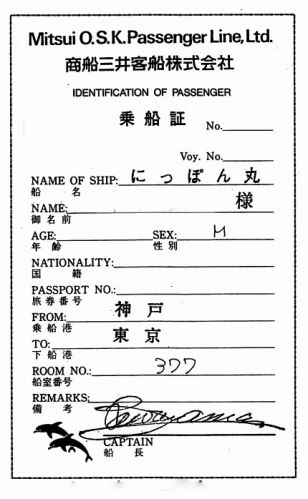 Mitsui O.S.K. Passenger Line, Ltd.
商船三井客船株式会社
IDENTIFICATION OF PASSENGER
乗船証
No.
Voy. No.
NAME OF SHIP: にっぽん丸
船 名
NAME: 様
御名前
AGE: SEX: M
年齢 性別
NATIONALITY:
国 籍
PASSPORT NO.:
旅券番号
FROM: 神戸
乗船港
TO: 東京
下船港
ROOM NO.: 377
船室番号
REMARKS:
備 考
CAPTAIN
船 長